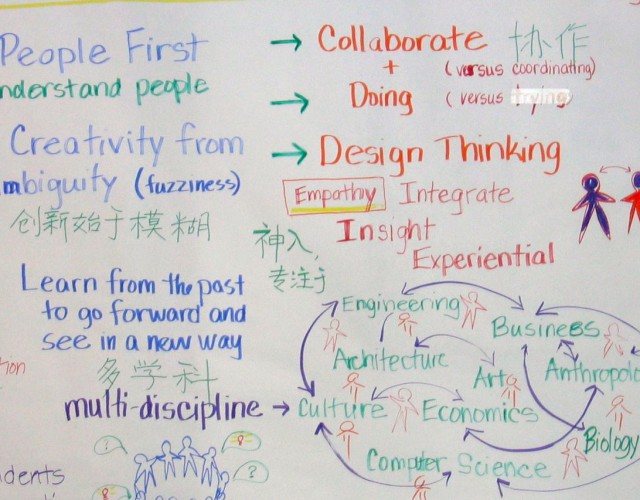 People First
nderstand people
→ Collaborate 协作
+ (versus coordinating)
→ Doing (versus trying)
Creativity from
mbiguity (fuzziness)
创新始于模糊
→ Design Thinking
Empathy Integrate
Insight
Experiential
神入,
专注于
Learn from the past
to go forward and
see in a new way
多学科
multi-discipline →
Engineering
Business
Architecture
Art
Anthropolo
Culture
Economics
Biology
Computer Science
?
dents